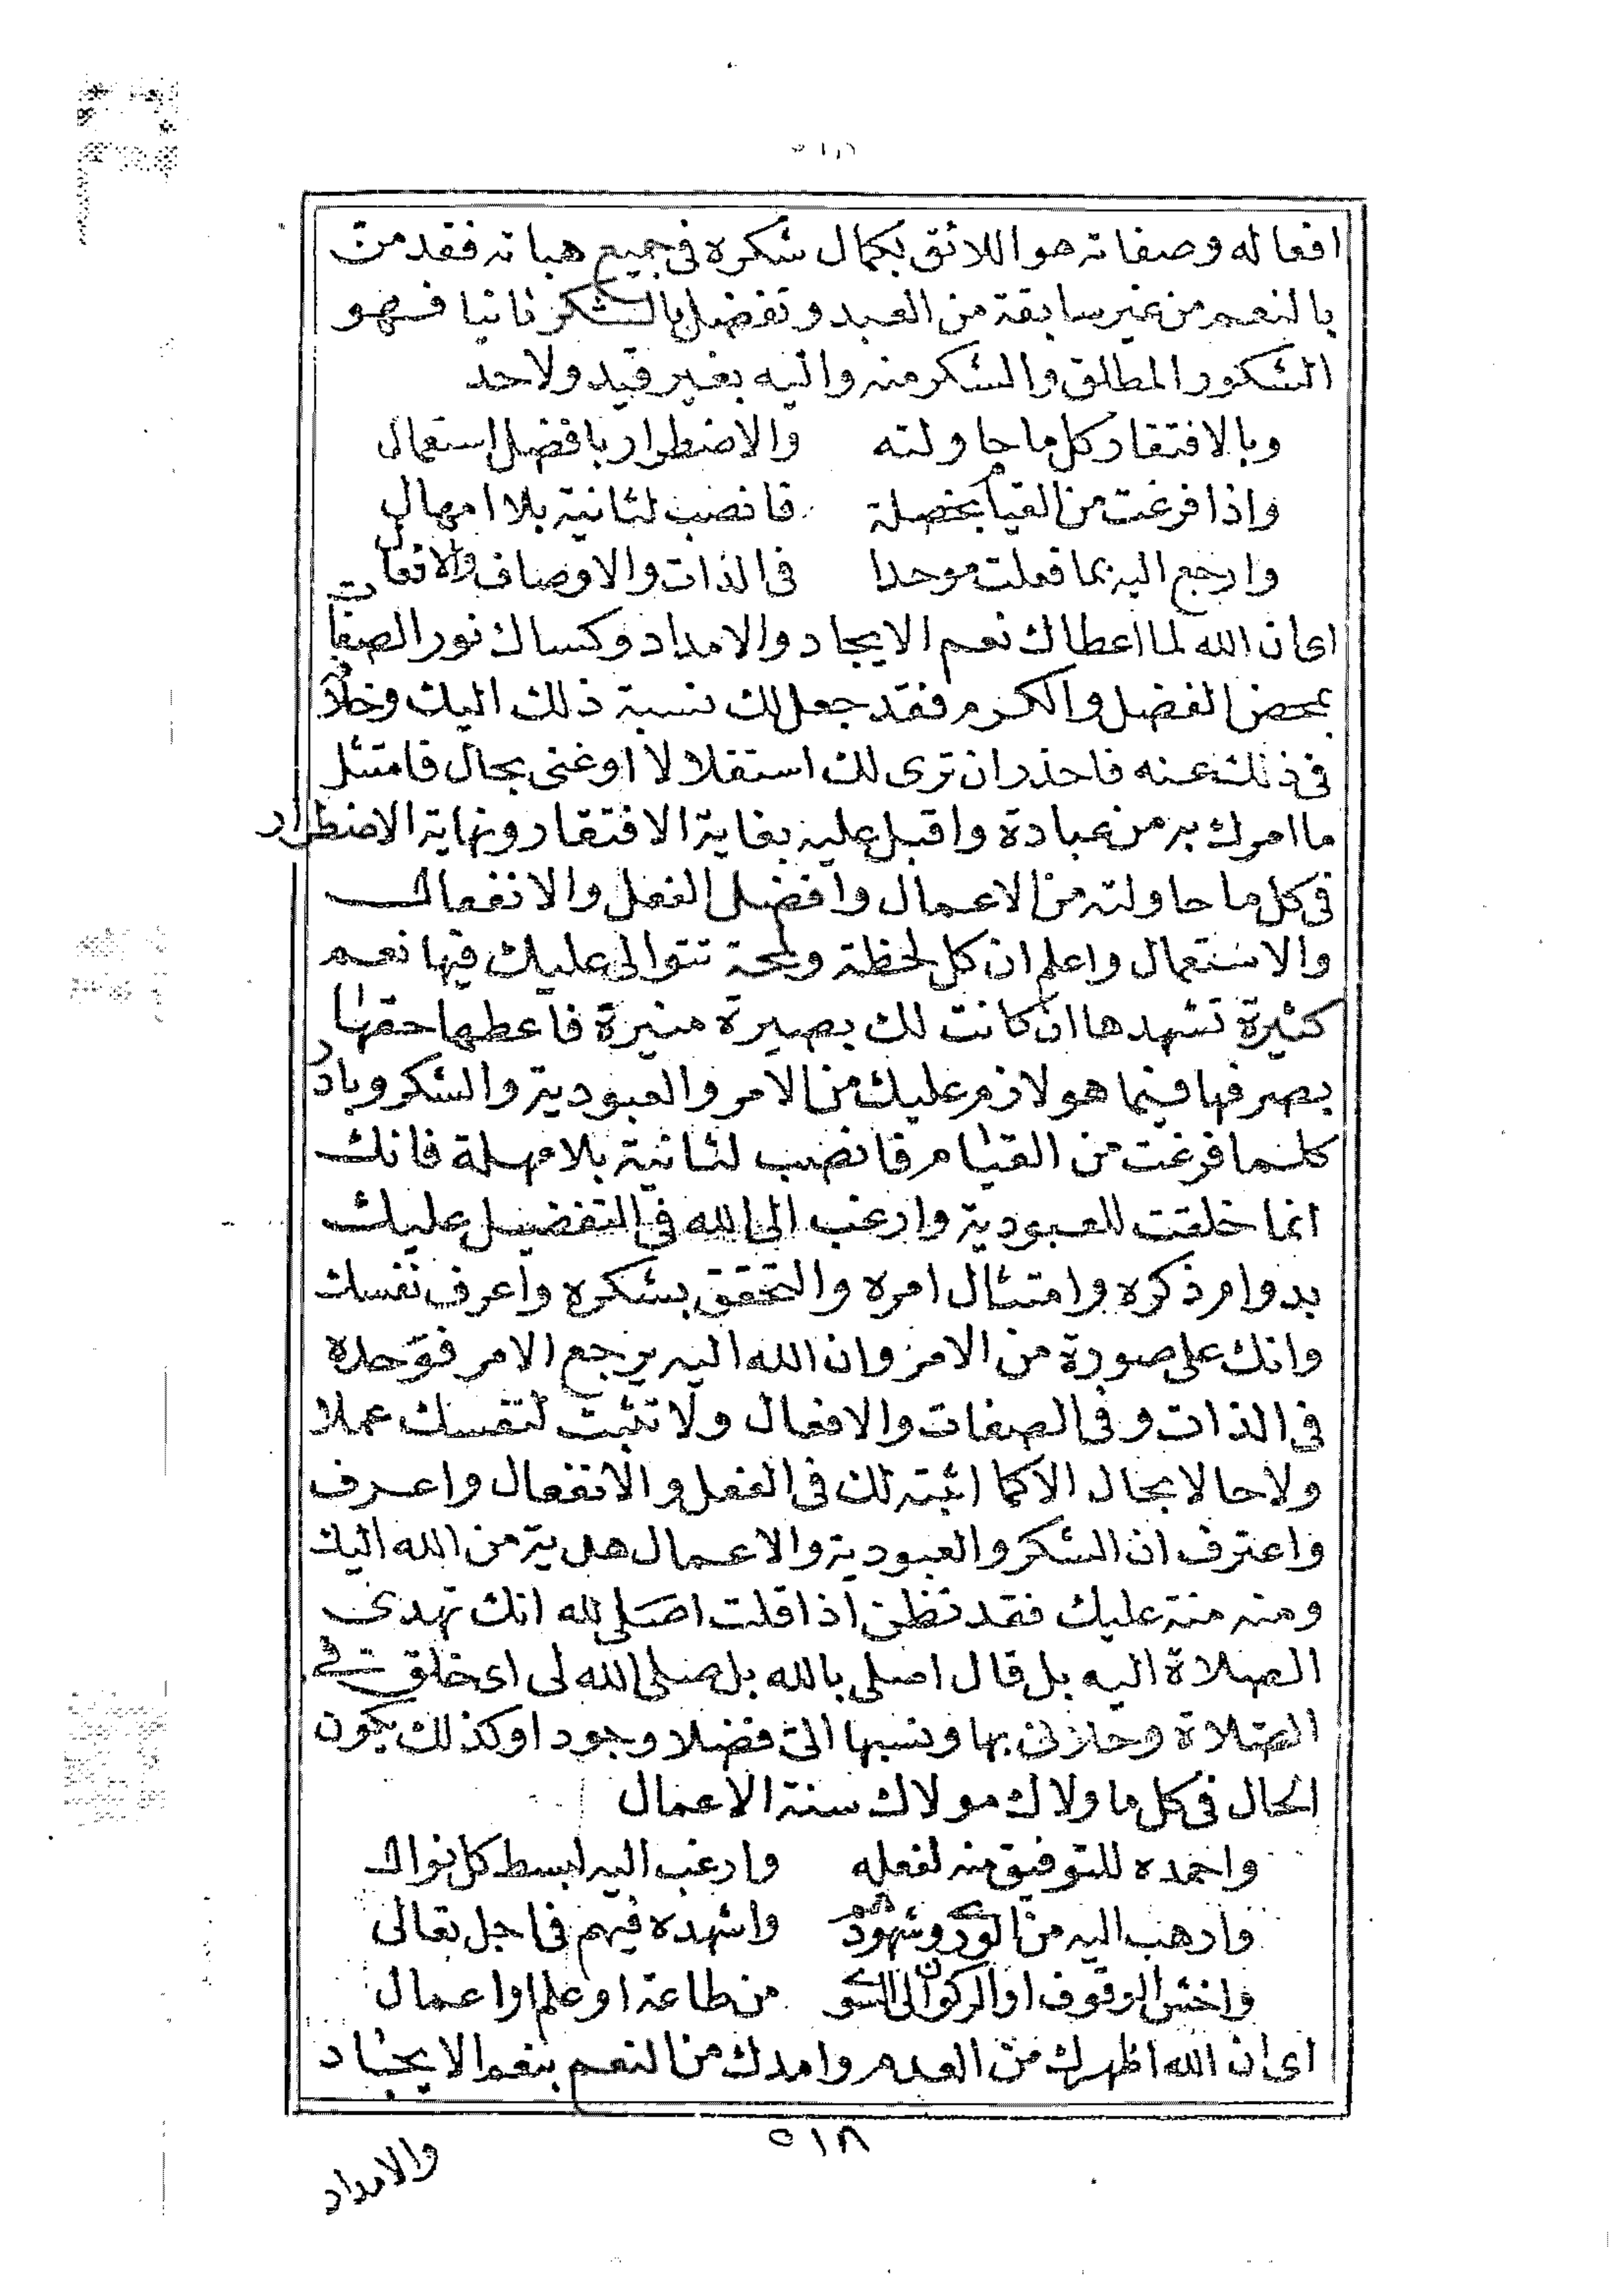 ٥١٨
افعاله وصفاته هو اللائق بكمال شكره فى جميع هباته فقد من
بالنعم من غير سابقة من العبد وتفضل بالشكر ثانيا فهو
الشكور المطلق والشكر منه واليه بغير قيد ولا حد
وبالافتقار كل ما حاولته والاضطرار بافضل استعمال
واذا فرغت من القيام بخصلة فانصب لثانية بلا امهال
وارجع اليه بما فعلت موحدا فى الذات والاوصاف والافعال
اى ان الله لما اعطاك نعم الايجاد والامداد وكساك نور الصفات
بمحض الفضل والكرم فقد جعل لك نسبة ذلك اليك وخلافة
فى ذلك عنه فاحذر ان ترى لك استقلالا او غنى بحال فامتثل
ما امرك به من عبادة واقبل عليه بغاية الافتقار ونهاية الاضطرار
فى كل ما حاولته من الاعمال وافضل الفعل والانفعال
والاستعمال واعلم ان كل لحظة ولمحة تتوالى عليك فيها نعم
كثيرة تشهدها ان كانت لك بصيرة منيرة فاعطها حقها
بصرفها فيما هو لازم عليك من الامر والعبودية والشكر وبادر
كلما فرغت من القيام فانصب لثانية بلا مهلة فانك
انما خلقت للعبودية وارغب الى الله فى التفضيل عليك
بدوام ذكره وامتثال امره والتحقق بشكره واعرف نفسك
وانك على صورة من الامر وان الله اليه يرجع الامر فوحده
فى الذات وفى الصفات والافعال ولا تثبت لنفسك عملا
ولا حالا بحال الا كما اثبته لك فى الفعل والانفعال واعرف
واعترف ان الشكر والعبودية والاعمال هدية من الله اليك
ومنه منة عليك فقد تظن اذا قلت اصلى لله انك تهدى
الصلاة اليه بل قال اصلى بالله بل صلى الله لى اى خلق فى
الصلاة وحلانى بها ونسبها الى فضلا وجودا وكذلك يكون
الحال فى كل ما ولاك مولاك سنة الاعمال
واحمده للتوفيق منه لفعله وارغب اليه لبسط كل نوال
وارهب اليه من الورى وشهودهم واشهده فيهم فى اجل تعالى
واخش الوقوف او الركون الى السوى من طاعة او علم او اعمال
اى ان الله اظهرك من العدم وامدك من النعم بنعم الايجاد
٥١٨
والامداد